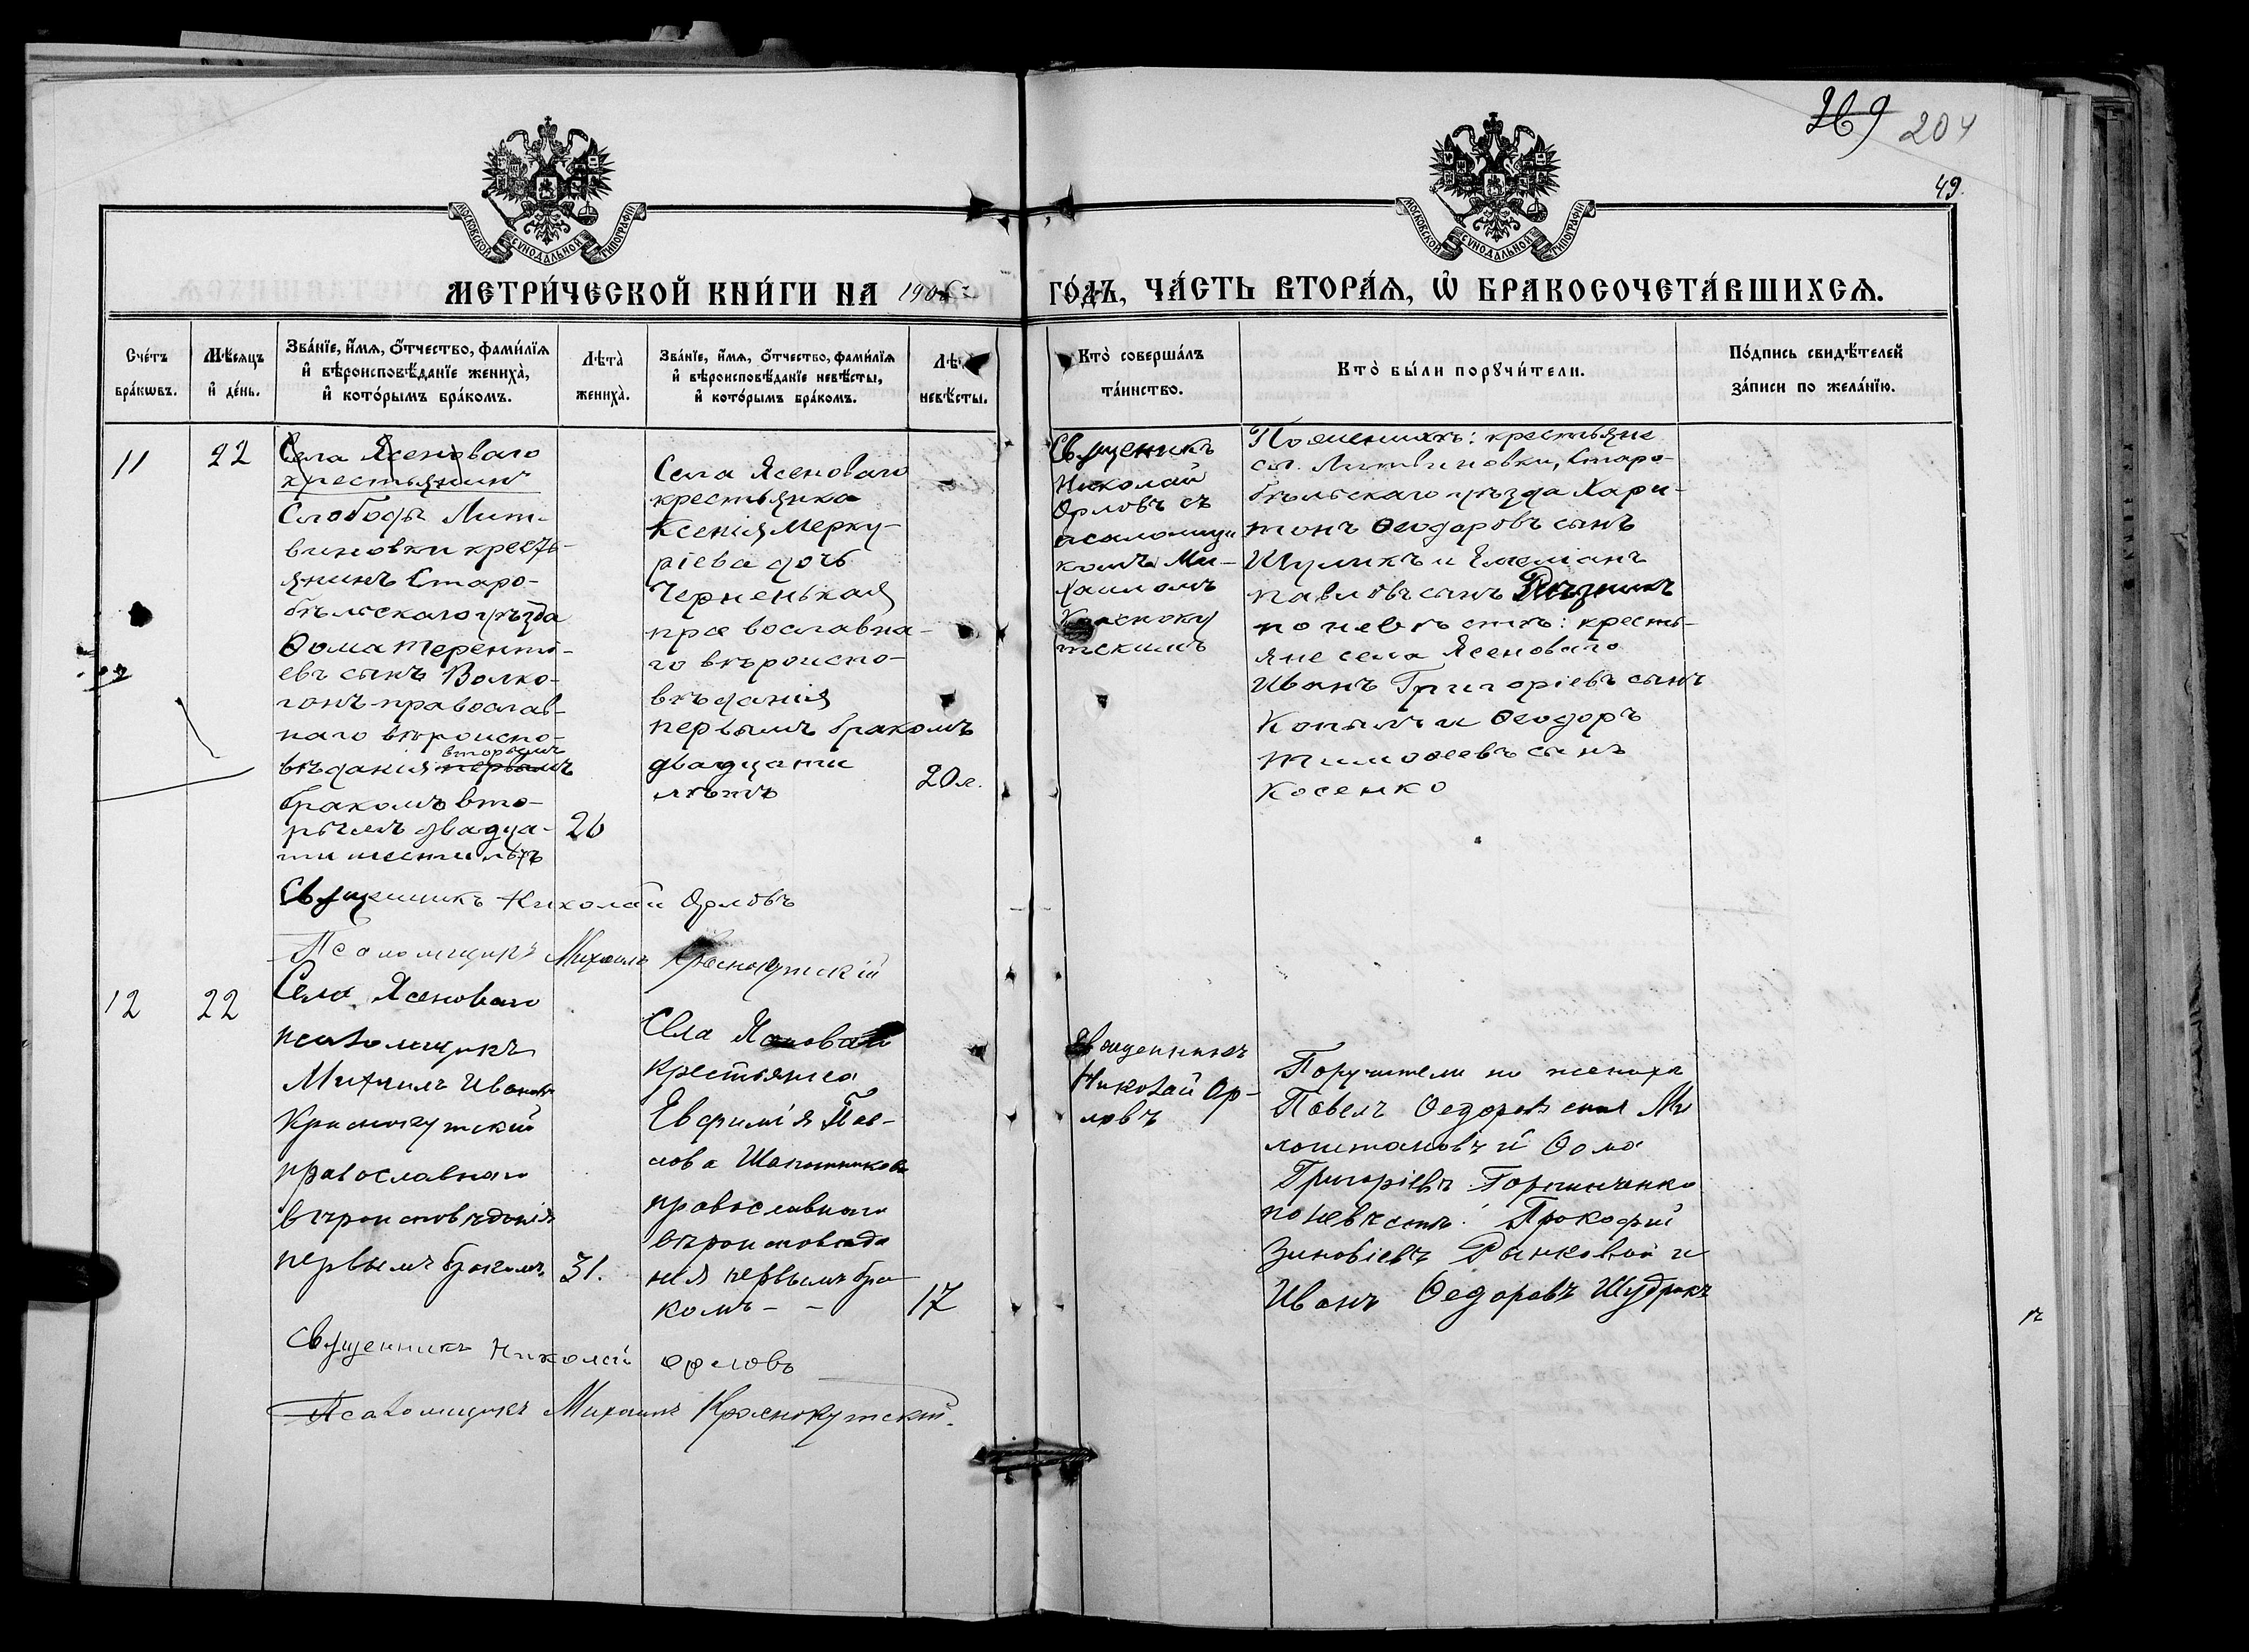 369 204
49.
МОСКОВСКОЙ СѴНОДАЛЬНОЙ ТИПОГРАФІИ
МОСКОВСКОЙ СѴНОДАЛЬНОЙ ТИПОГРАФІИ
МЕТРИ́ЧЕСКОЙ КНИ́ГИ НА
ГО́ДЪ, ЧА́СТЬ ВТОРА́Я, Ѡ҆ БРАКОСОЧЕТА́ВШИХСЯ.
Сче́тъ
бра́кѡвъ.
Мѣ́сяцъ
и҆ де́нь.
Зва́нїе, и҆́мя, ѻ҆́тчество, фами́лїя
и҆ вѣроисповѣ́данїе жениха̀,
и҆ кото́рымъ бра́комъ.
Лѣта̀
жениха̀.
Зва́нїе, и҆́мя, ѻ҆́тчество, фами́лїя
и҆ вѣроисповѣ́данїе невѣ́сты,
и҆ кото́рымъ бра́комъ.
Лѣ
невѣ́сты.
Кто̀ соверша́лъ
та́инство.
Кто̀ бы́ли порꙋчи́тели.
По́дпись свидѣ́телей
за́писи по жела́нїю.
11
22
Села Ясеноваго
крестьянинъ
Слободы Лит-
виновки кресть-
янинъ Старо-
бѣльскаго уѣзда
Ѳома Теренті-
евъ сынъ Волко-
гонъ православ-
наго вѣроиспо-
вторымъ
вѣданія первымъ
бракомъ вто-
рымъ двадца-
ти шести лѣтъ
26
Села Ясеноваго
крестьянка
Ксенія Мерку-
ріева дочь
Черненькая
православна-
го вѣроиспо-
вѣданія
первымъ бракомъ
двадцати
лѣтъ
20 л.
Священикъ
Николай
Орловъ съ
псаломщи
комъ Ми-
хаиломъ
Красноку
тскимъ
По женихѣ: крестьяне
сл. Литвиновки, Старо-
бѣльскаго уѣзда Хари-
тонъ Ѳеодоровъ сынъ
Шуликъ и Емеліанъ
Павловъ сынъ Рѣзникъ
по невѣстѣ: кресть-
яне села Ясеноваго
Иванъ Григоріевъ сынъ
Копылъ и Ѳеодоръ
Тимоѳеевъ сынъ
Косенко
Священникъ Николай Орловъ
Псаломщикъ Михаилъ Краснокутскій
12
22
Села Ясеноваго
псаломщикъ
Михаилъ Ивановъ
Краснокутскій
православнаго
вѣроисповѣданія
первымъ бракомъ
31.
Села
крестьянка
Евфимія Пав-
лова Шапошникова
православнаго
вѣроисповѣда
нія первымъ бра
комъ - -
17
Священникъ
Николай Ор-
ловъ
Поручители по жениха
Павелъ Ѳедоровъ сынъ Ми
лоштановъ и Ѳома
Григоріевъ
по невѣстѣ: Прокофій
Зиновіевъ Рынковой и
Иванъ Ѳедоровъ Щудракъ
Священникъ Николай Орловъ
Псаломщикъ Михаилъ Краснокутскій.